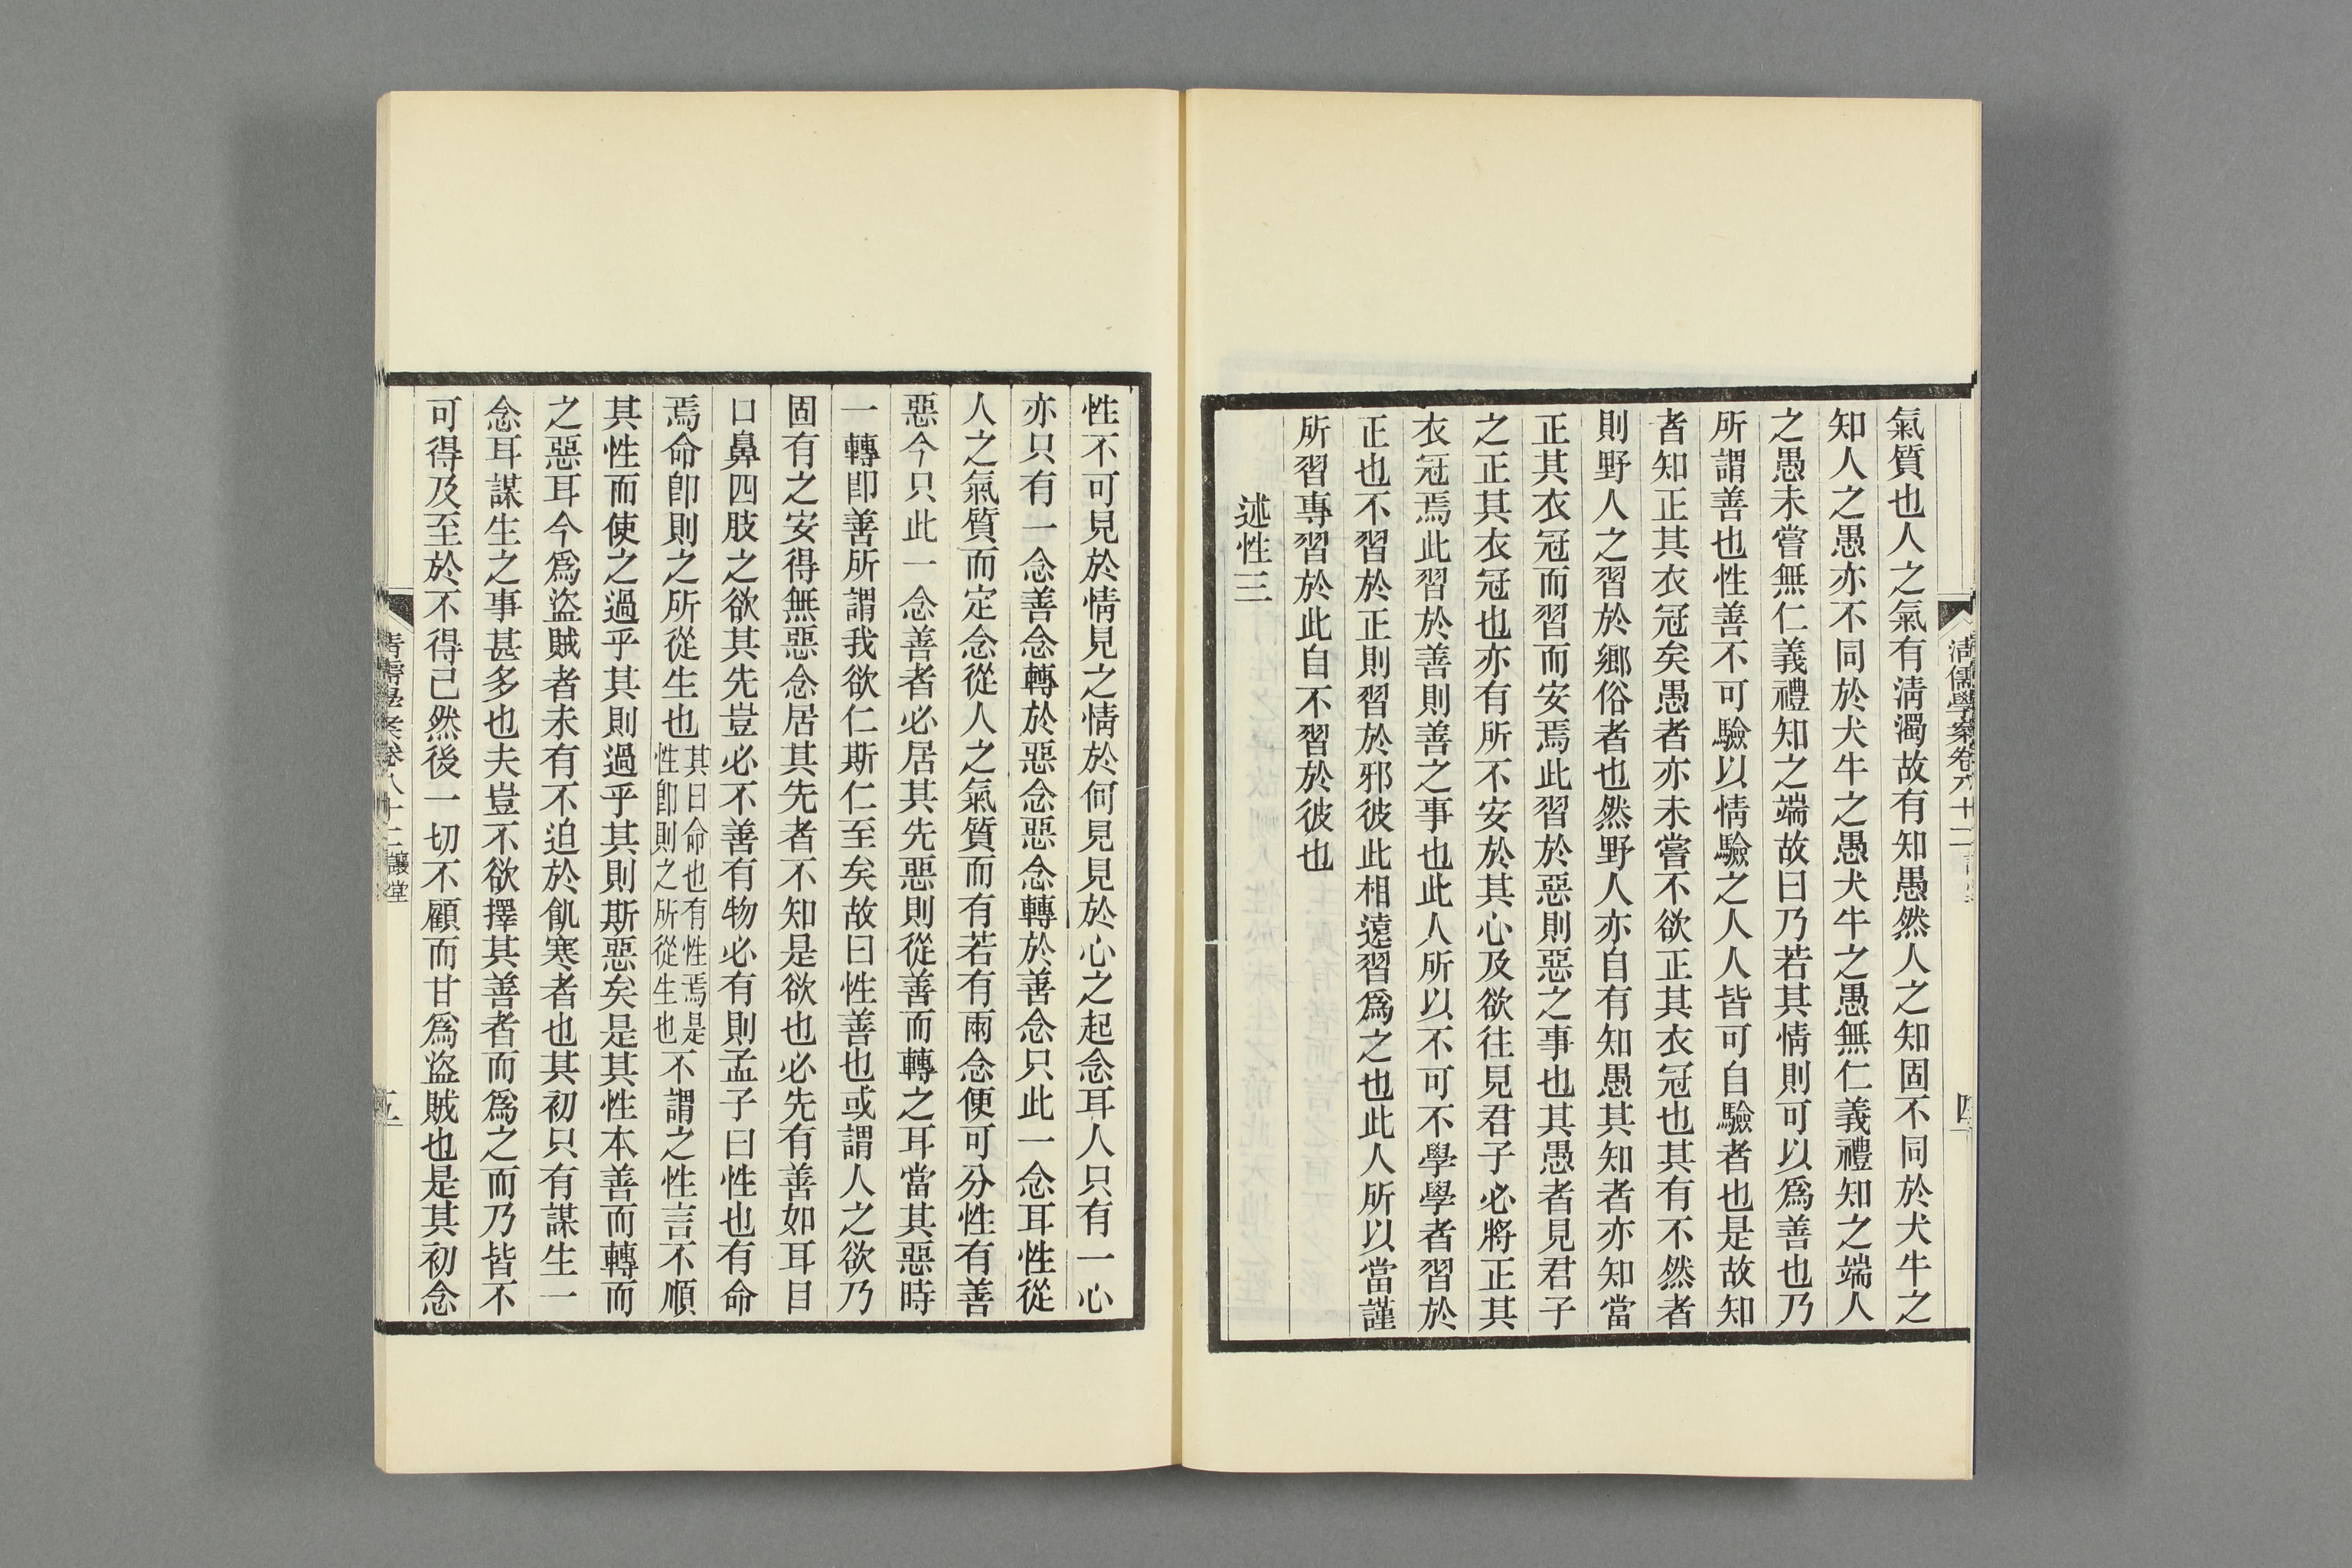 氣質也人之氣有淸濁故有知愚然人之知固不同於犬牛之
知人之愚亦不同於犬牛之愚犬牛之愚無仁義禮知之端人
之愚未嘗無仁義禮知之端故曰乃若其情則可以爲善也乃
所謂善也性善不可驗以情驗之人人皆可自驗者也是故知
者知正其衣冠矣愚者亦未嘗不欲正其衣冠也其有不然者
則野人之習於鄉俗者也然野人亦自有知愚其知者亦知當
正其衣冠而習而安焉此習於惡則惡之事也其愚者見君子
之正其衣冠也亦有所不安於其心及欲往見君子必將正其
衣冠焉此習於善則善之事也此人所以不可不學學者習於
正也不習於正則習於邪彼此相遠習爲之也此人所以當謹
所習專習於此自不習於彼也
述性三
淸儒學案卷八十二
四
性不可見於情見之情於何見見於心之起念耳人只有一心
亦只有一念善念轉於惡念惡念轉於善念只此一念耳性從
人之氣質而定念從人之氣質而有若有兩念便可分性有善
惡今只此一念善者必居其先惡則從善而轉之耳當其惡時
一轉卽善所謂我欲仁斯仁至矣故曰性善也或謂人之欲乃
固有之安得無惡念居其先者不知是欲也必先有善如耳目
口鼻四肢之欲其先豈必不善有物必有則孟子曰性也有命
焉命卽則之所從生也其曰命也有性焉是性卽則之所從生也不謂之性言不順
其性而使之過乎其則過乎其則斯惡矣是其性本善而轉而
之惡耳今爲盜賊者未有不迫於飢寒者也其初只有謀生一
念耳謀生之事甚多也夫豈不欲擇其善者而爲之而乃皆不
可得及至於不得已然後一切不顧而甘爲盜賊也是其初念
淸儒學案卷八十二
五